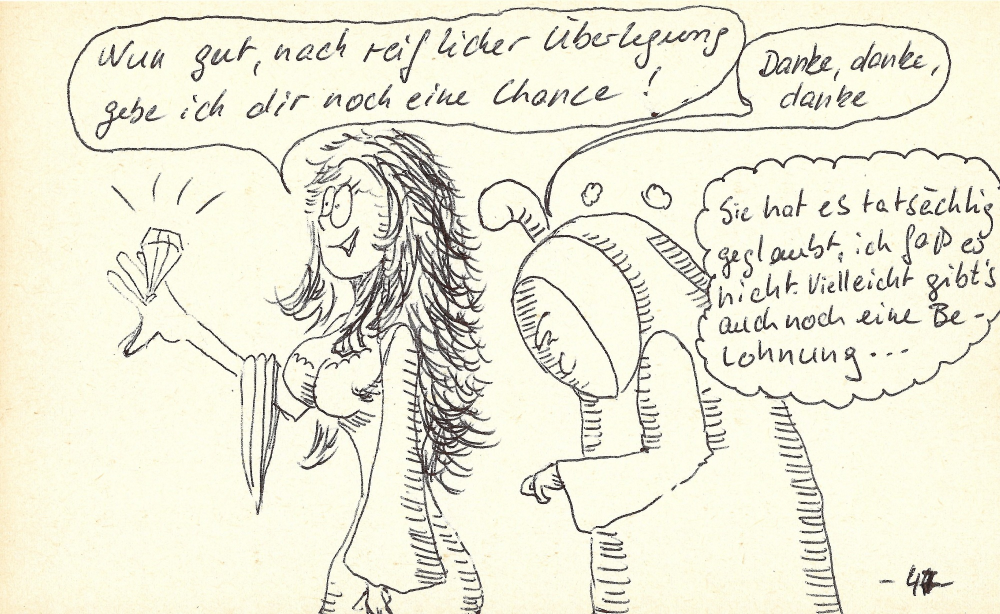 Nun gut, nach reiflicher Überlegung
gebe ich dir noch eine Chance!
Danke, danke,
danke
Sie hat es tatsächlig
geglaubt, ich faß es
nicht. Vielleicht gibt's
auch noch eine Be-
lohnung...